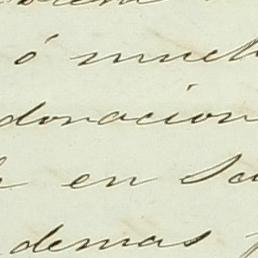 ó much
donacion
en Sa
demas